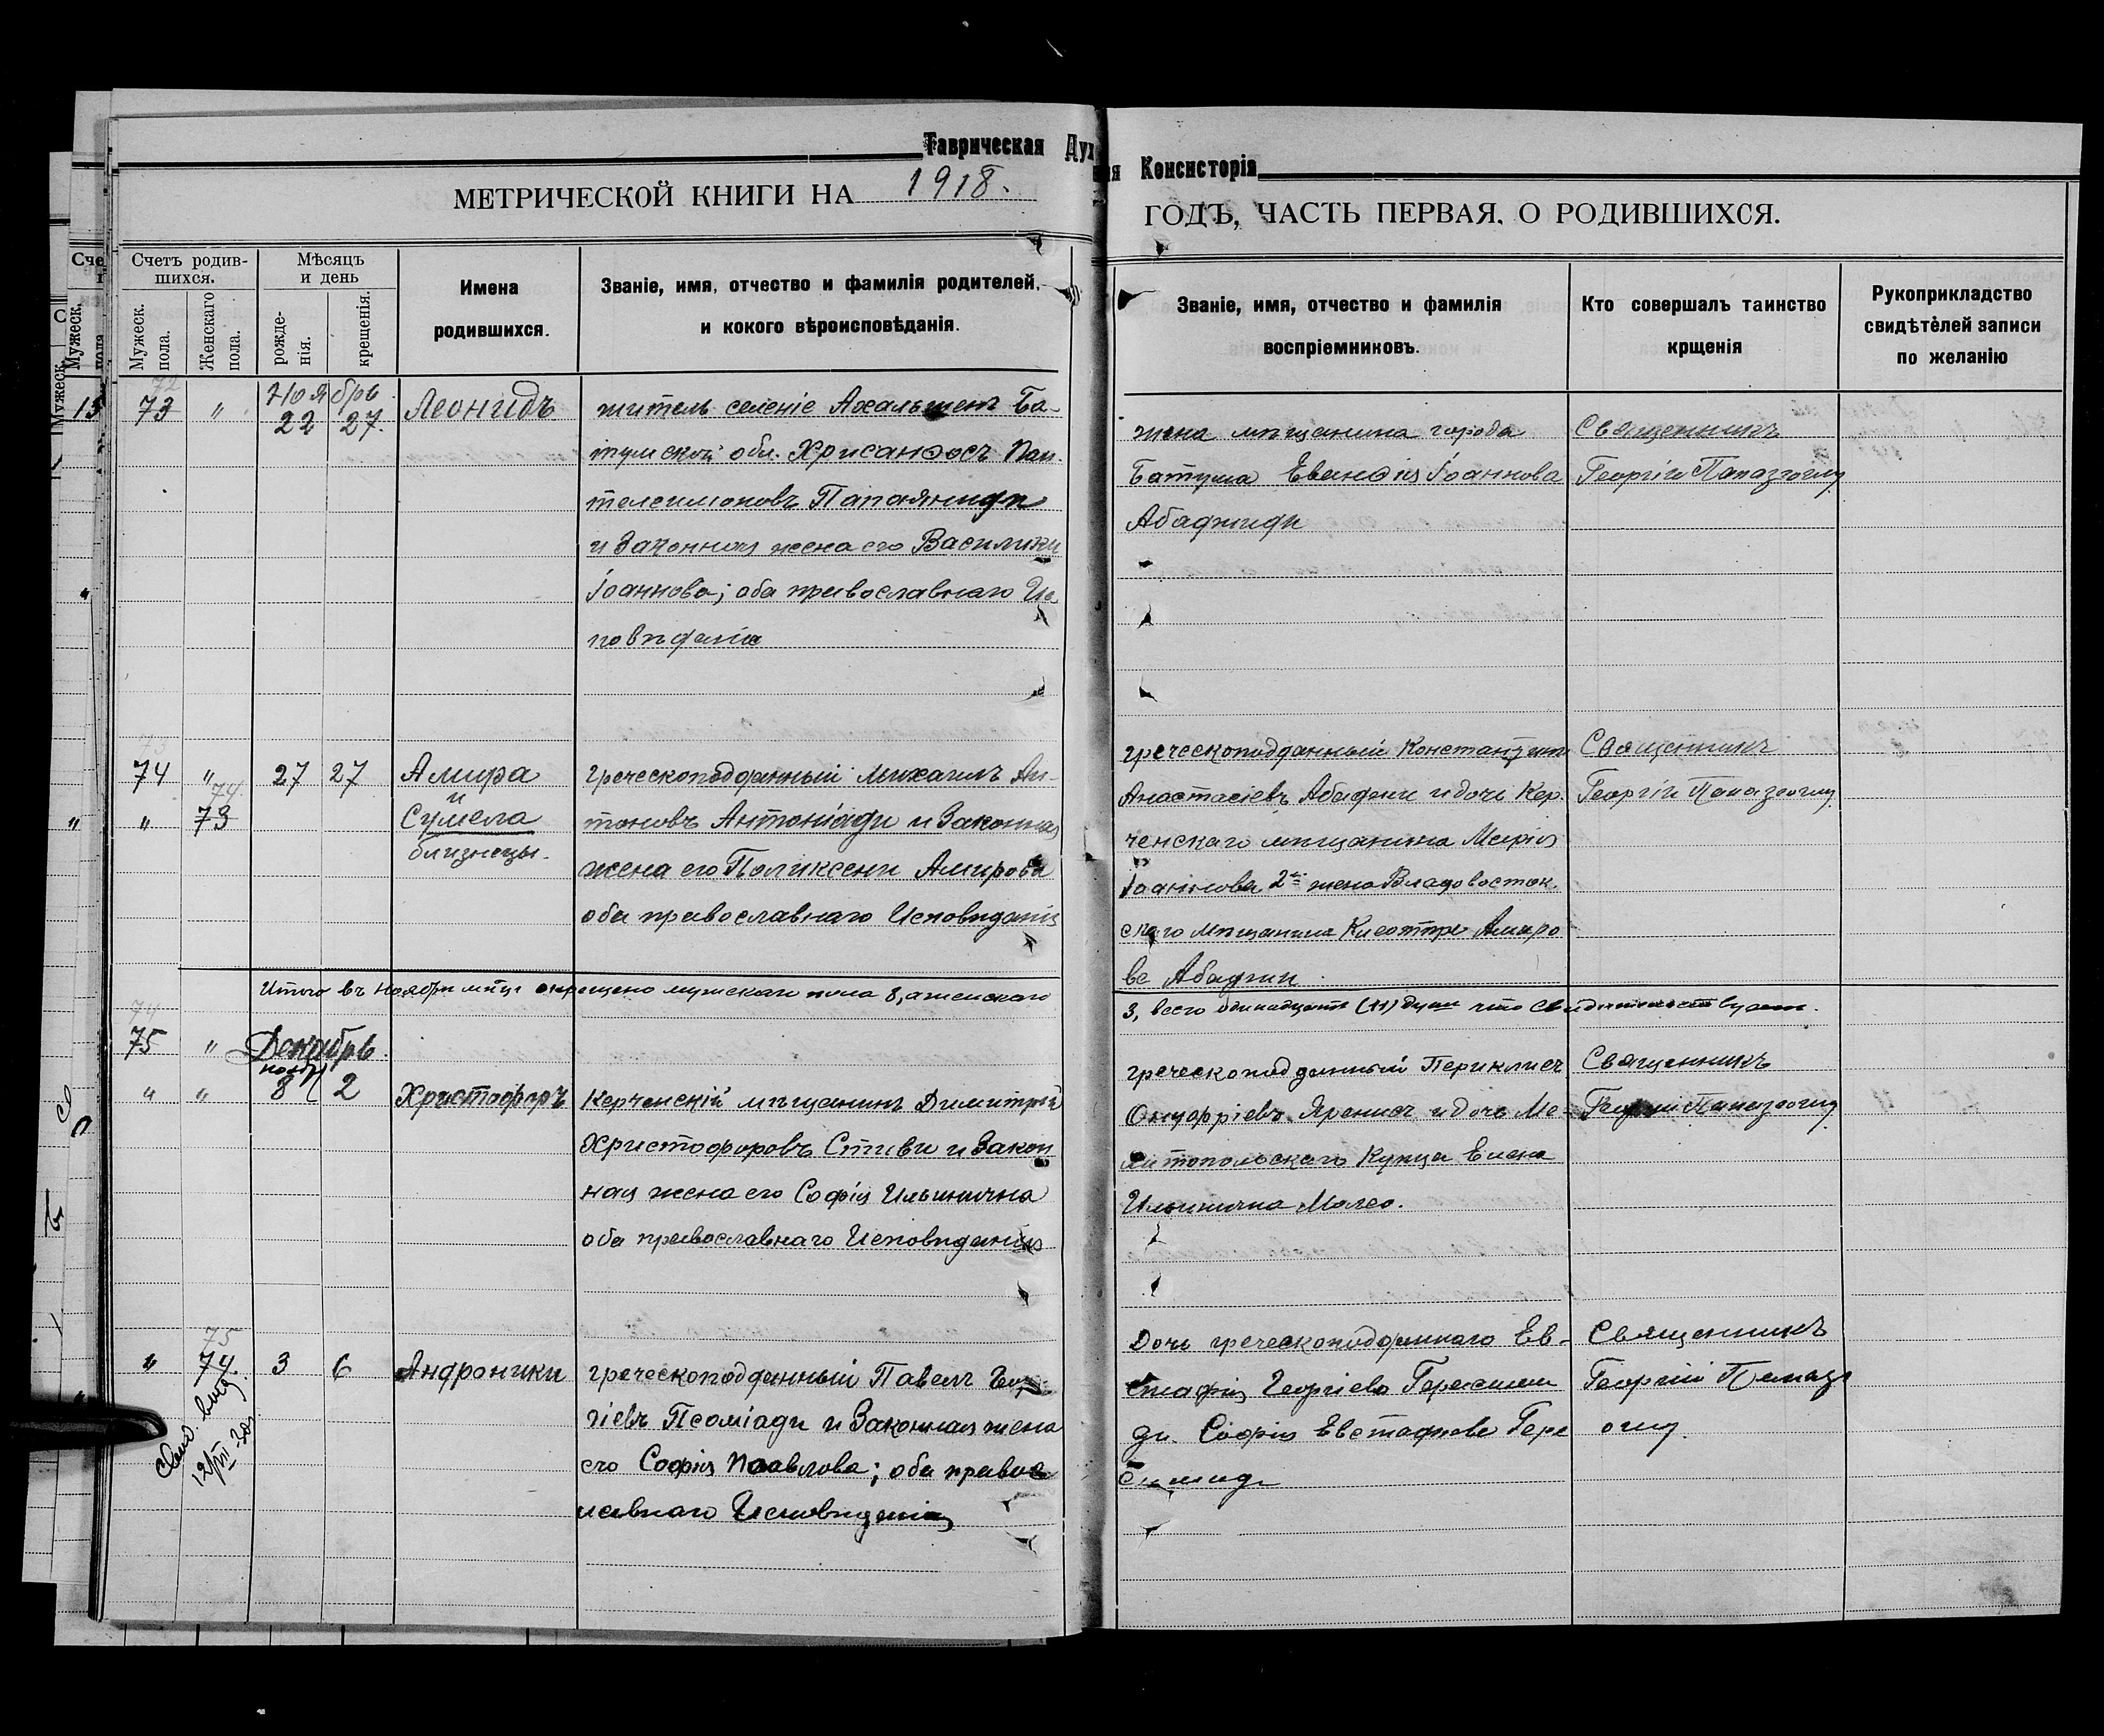 Таврическая Дух
ая Консисторія
МЕТРИЧЕСКОЙ КНИГИ НА 1918.
ГОДЪ, ЧАСТЬ ПЕРВАЯ, О РОДИВШИХСЯ.
Счетъ родив-
шихся.
Мужеск. пола.
Женскаго пола.
Мѣсяцъ
и день
рожде-
нія.
крещенія.
Имена
родившихся.
Званіе, имя, отчество и фамилія родителей,
и кокого вѣроисповѣданія.
Званіе, имя, отчество и фамилія
воспріемниковъ.
Кто совершалъ таинство
крщенія
Рукоприкладство
свидѣтелей записи
по желанію
72
73 " Ноябрь
22 27. Леонидъ
житель селеніе Ахальшенъ Ба-
тумской обл. Хрисанѳосъ Пан-
телеимоновъ Папаяниди
и Законная жена его Василики
Іоаннова; оба православнаго Ис
повѣданія
жена мѣщанина города
Батума Еванѳія Іоаннова
Абаджиди
Священникъ
Георгій Папазоглу
73
74 " 27 27 Амира
и
74
" 73 Сумела
близнецы.
греческоподданный Михаилъ Ан-
тоновъ Антоніади и Законная
жена его Поликсени Амирова
оба православнаго Исповѣданія
греческоподданный Константинъ
Анастасіевъ и дочь Кер-
ченскаго мѣщанина Марія
Іоаннова 2я жена Владовосток-
скаго мѣщанина Амиро
ва
Священникъ
Георгій Папазоглу
Итого въ Ноябрѣ м-цѣ окрещено мужскаго пола 8, а женскаго
3, всего одинадцать (11) душъ что свидѣтельствуемъ.
74
75 " Декабрь
нояб
" " 8 2 Христофоръ
Керченскій мѣщанинъ Димитрій
Христофоровъ Стиви и Закон
ная жена его Софія Ильинична
оба православнаго Исповѣданія
греческоподданный Периклисъ
Онуфріевъ и дочь Ме-
литопольскаго Купца Елена
Ильинична
Священникъ
Георгій Папазоглу
75
" 74 3 6 Андроники
Свид. выд.
12/VII 30г
греческоподданный Павелъ Геор
гіевъ Псоміади и Законная жена
его Софія Павлова; оба правос
лавнаго Исповѣданія
Дочь греческоподданнаго Ев-
стафія Георгіева Герасими
ди. Софія Евстафіева Гера
симиди
Священникъ
Георгій Папаз
оглу.